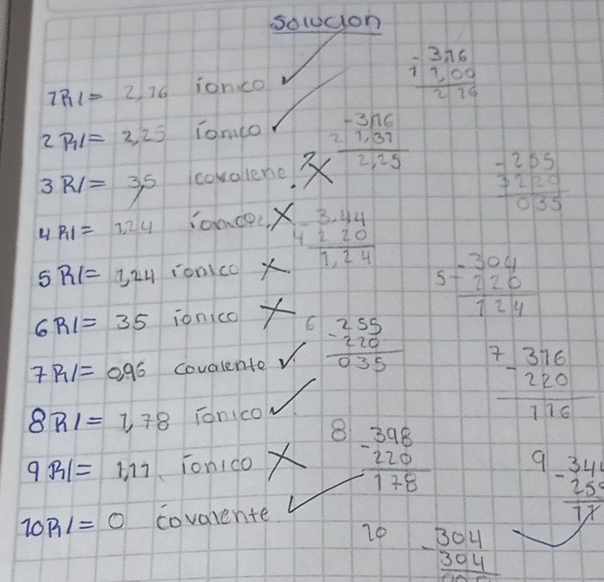 Solucion
1R/= 2,16 ionico ✓
2R/= 2,25 ionico ✓
3R/= 3,5 covalene? X
4R/= 1,24 X
5R/= 1,24 ionico X
6R/= 35 ionico X
7R/= 0,96 covalente ✓
8R/= 1,78 ionico ✓
9R/= 1,11 ionico X
10R/= 0 covalente ✓
- 3,16
1 1,00
2 16
- 3,16
2 1,31
2,25
- 255
3 220
035
3.44
4 2 20
1,24
- 304
5 - 220
124
6 255
- 220
035
7 316
- 220
116
8 398
- 220
178
9 344
- 25
11
10 304
- 304